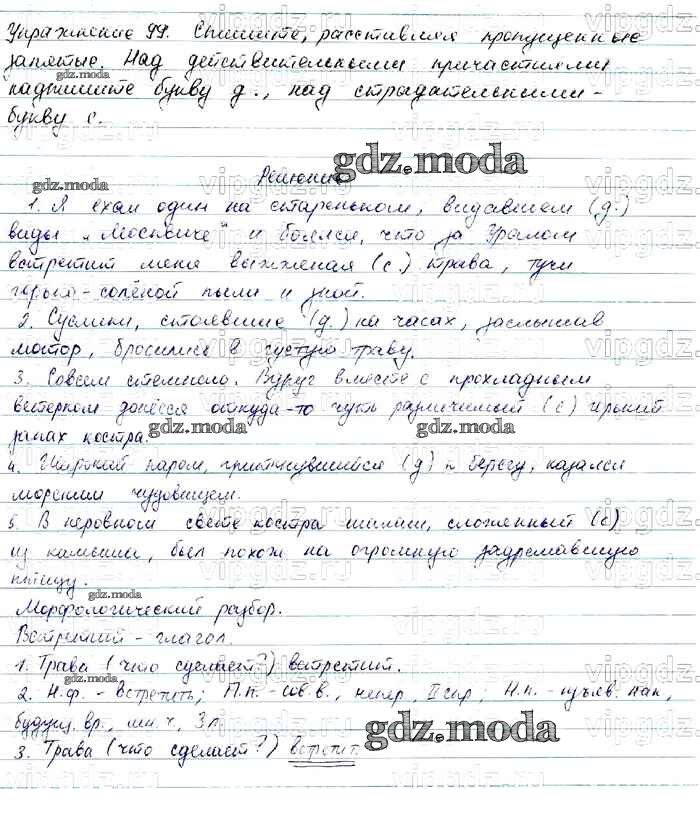 Упражнение 99. Спишите, расставляя пропущенные
запятые. Над действительными причастиями
надпишите букву д., над страдательными -
букву с.
Решение
gdz.moda
1. Я ехал один на стареньком, видавшем (д.)
виды "Москвиче" и боялся, что за Уралом
встретит меня выжженая (с.) трава, тучи
горько-солёной пыли и зной.
2. Суслики, стоявшие (д.) на часах, заслышав
мотор, бросились в густую траву.
3. Совсем стемнело. Вдруг вместе с прохладным
ветерком донёсся откуда-то чуть различимый (с) горький
запах костра.
4. Широкий паром, приткнувшийся (д) к берегу, казался
морским чудовищем.
5. В неровном свете костра шалаш, сложенный (с)
из камыша, был похож на огромную задремавшую
птицу.
Морфологический разбор.
Встретит - глагол.
1. Трава (что сделает?) встретит.
2. Н.ф. - встретить; П.п. - сов.в., непер, II спр; Н.п. - изъяв. нак,
будущ. вр., мн. ч, 3л.
gdz.moda
3. Трава (что сделает?) встретит.